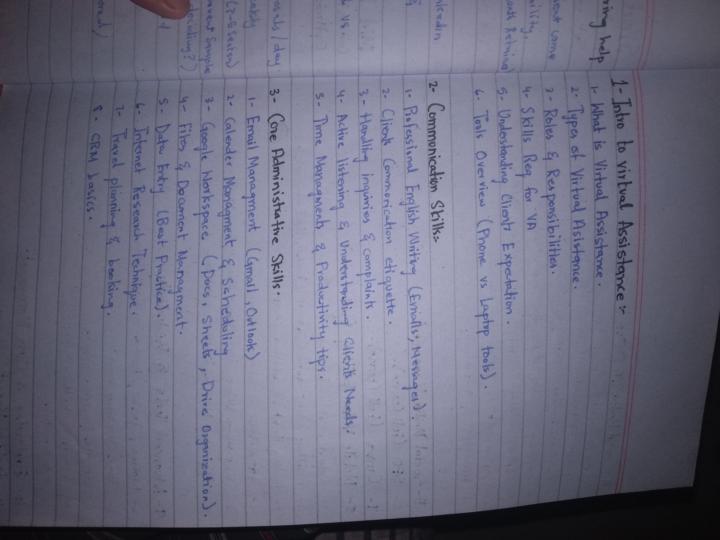 1- Intro to virtual Assistance:-
1- What is Virtual Assistance.
2- Types of Virtual Asistance.
3- Roles & Responsibilities.
4- Skills Req for VA
5- Undestanding Clients Expectation.
6. Tools Overview (Phone vs Laptop tools).
2- Commonication Skills:-
1- Professional English Writing (Emails, Messages).
2- Clients Commonication etiquette.
3- Handling inquiries & complaints.
4- Active listening & Understanding Clients Needs.
5- Time Managments & Productivity tips.
3- Core Administrative Skills.
1- Email Managment (Gmail, Outlook)
2- Calender Managment & Scheduling
3- Google Workspace (Docs, Sheets, Drive Organization).
4- Files & Document Managment.
5- Data Entry (Best Practice).
6- Internet Research Technique.
7- Travel planning & booking.
8. CRM basics.
ring help
linkedin
/ day.